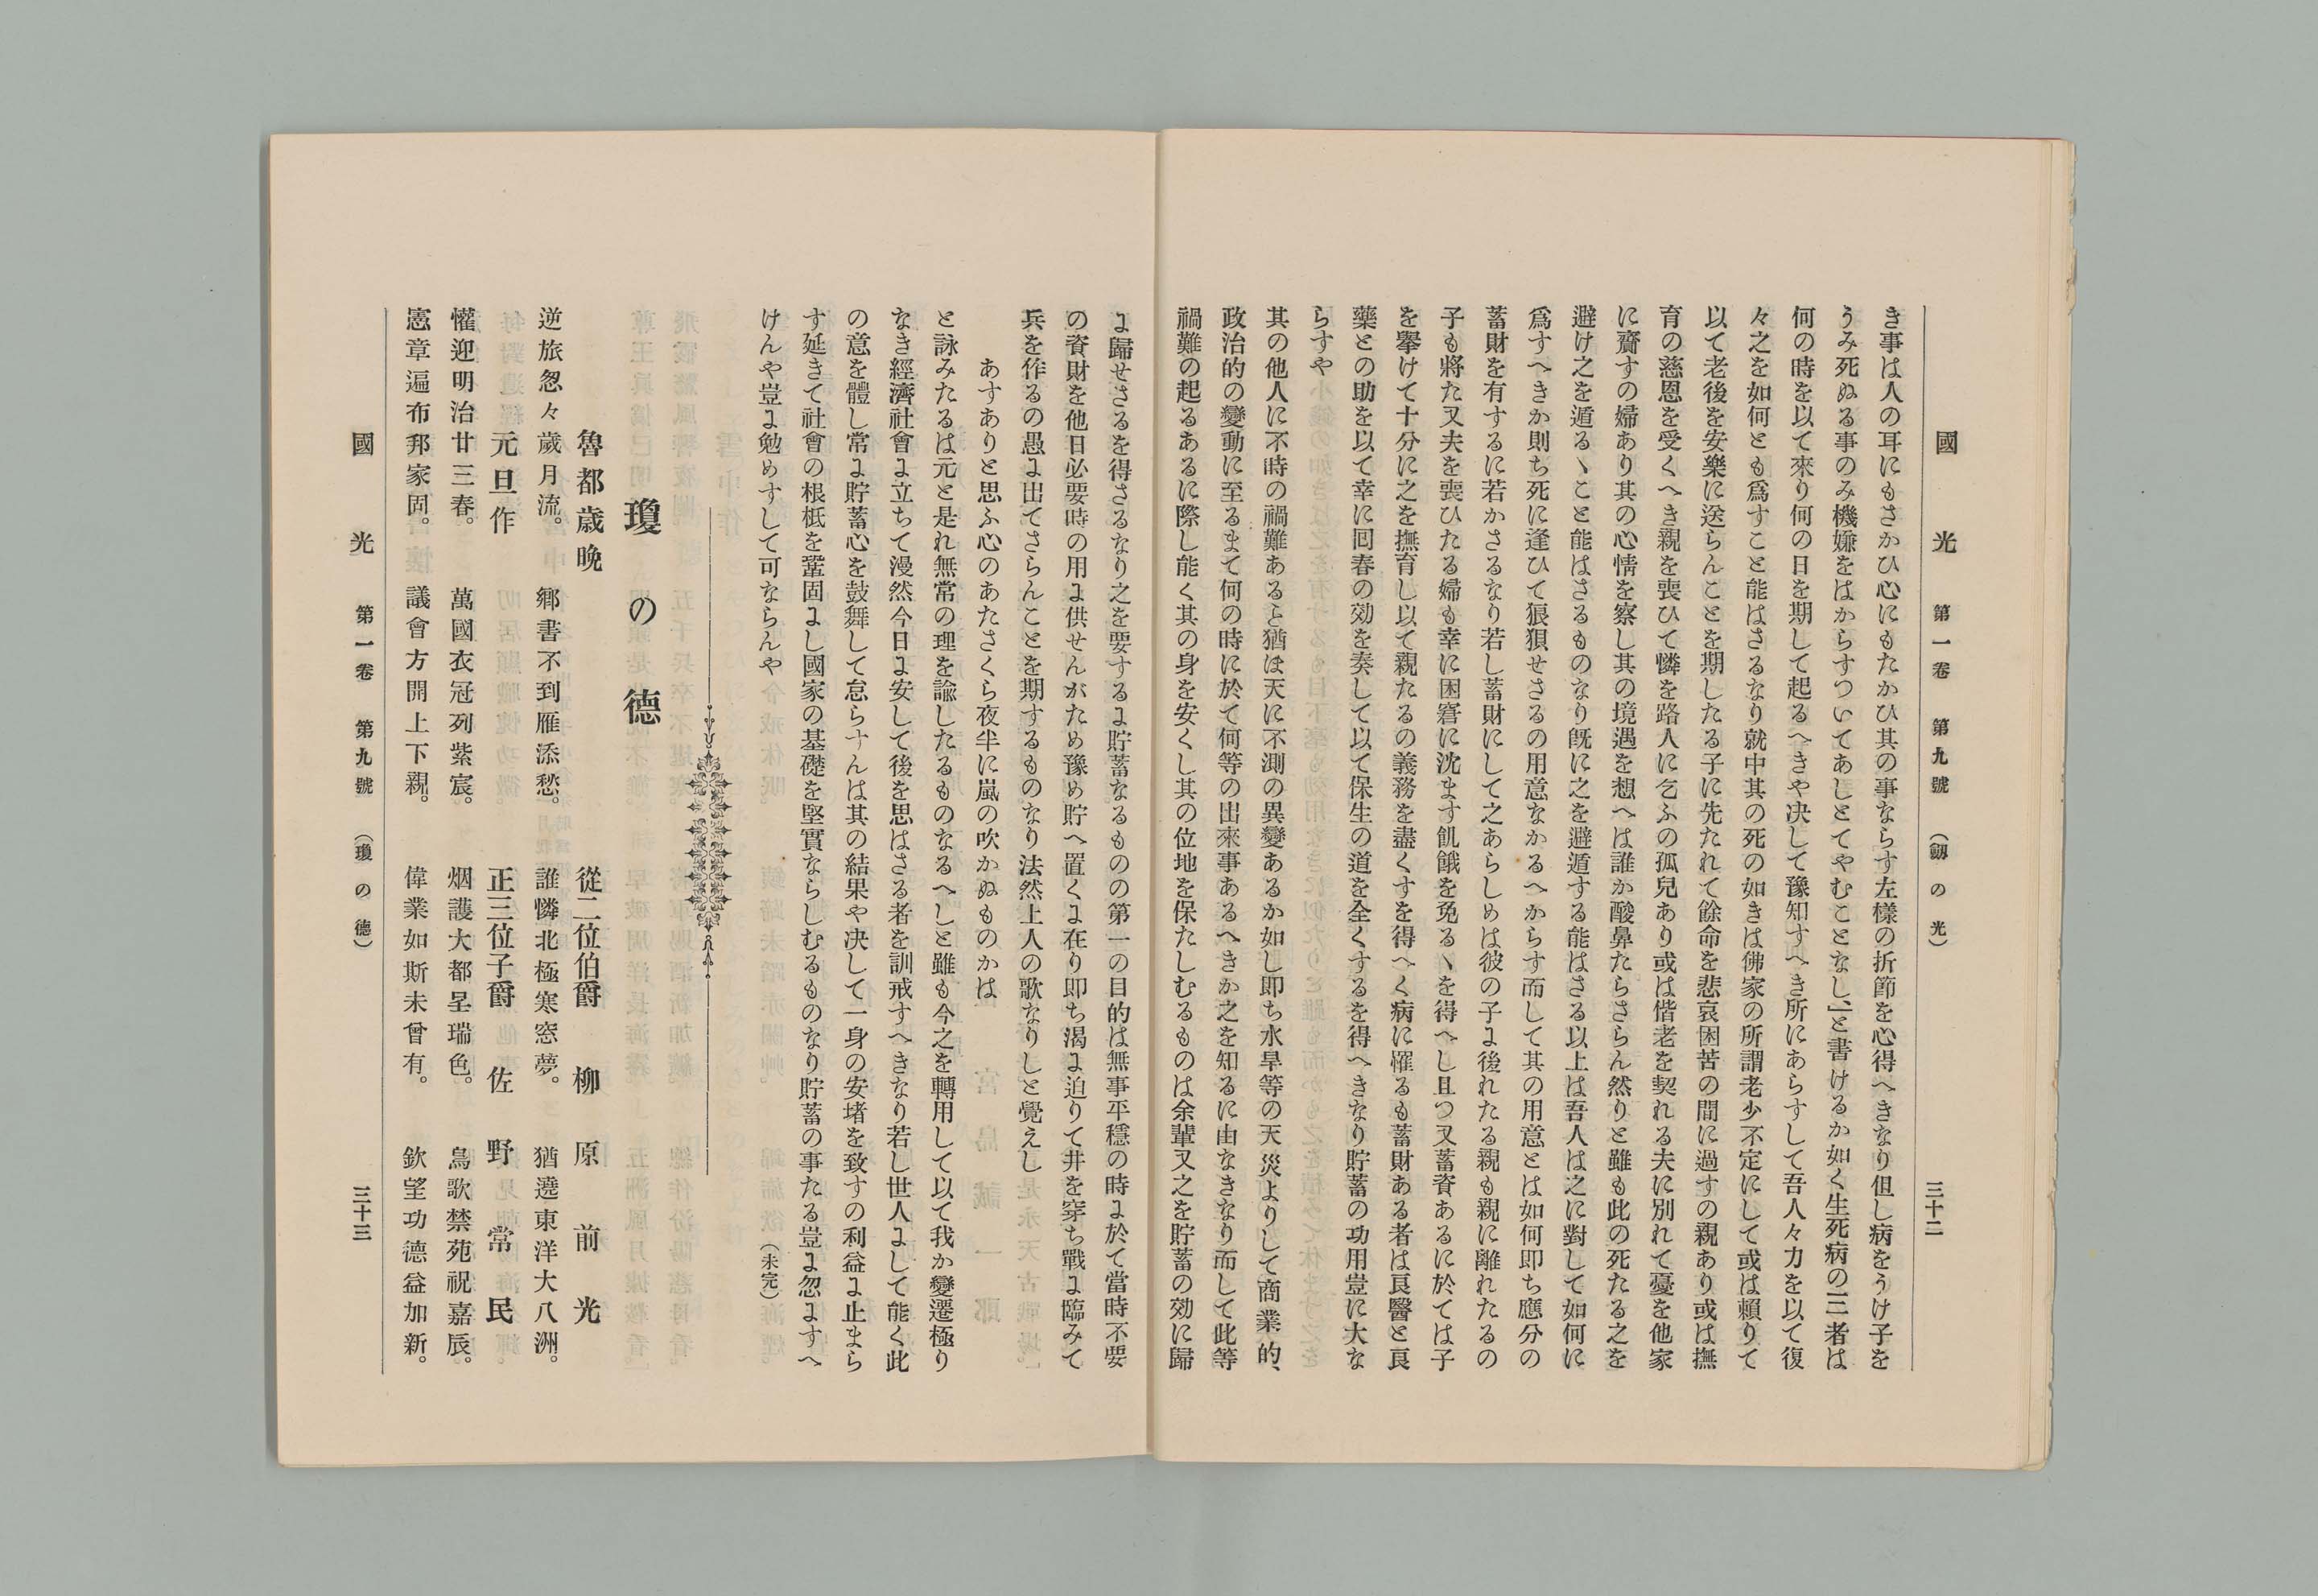 國光 第一卷 第九號 (劔の光) 三十二
き事は人の耳にもさかひ心にもたかひ其の事ならす左樣の折節を心得へきなり但し病をうけ子を
うみ死ぬる事のみ機嫌をはからすついてあしとてやむことなし」と書けるか如く生死病の三者は
何の時を以て來り何の日を期して起るへきや决して豫知すへき所にあらすして吾人々力を以て復
々之を如何とも爲すこと能はさるなり就中其の死の如きは佛家の所謂老少不定にして或は賴りて
以て老後を安樂に送らんことを期したる子に先たれて餘命を悲哀困苦の間に過すの親あり或は撫
育の慈恩を受くへき親を喪ひて憐を路人に乞ふの孤兒あり或は偕老を契れる夫に別れて憂を他家
に齎すの婦あり其の心情を察し其の境遇を想へは誰か酸鼻たらさらん然りと雖も此の死たる之を
避け之を遁るヽこと能はさるものなり既に之を避遁する能はさる以上は吾人は之に對して如何に
爲すへきか則ち死に逢ひて狼狽せさるの用意なかるへからす而して其の用意とは如何即ち應分の
蓄財を有するに若かさるなり若し蓄財にして之あらしめは彼の子よ後れたる親も親に離れたるの
子も將た又夫を喪ひたる婦も幸に困窘に沈ます飢餓を免るヽを得へし且つ又蓄資あるに於ては子
を擧けて十分に之を撫育し以て親たるの義務を盡くすを得へく病に罹るも蓄財ある者は良醫と良
藥との助を以て幸に回春の効を奏して以て保生の道を全くするを得へきなり貯蓄の功用豈に大な
らすや
其の他人に不時の禍難あると猶ほ天に不測の異變あるか如し即ち水旱等の天災よりして商業的、
政治的の變動に至るまて何の時に於て何等の出來事あるへきか之を知るに由なきなり而して此等
禍難の起るあるに際し能く其の身を安くし其の位地を保たしむるものは余輩又之を貯蓄の効に歸
よ歸せさるを得さるなり之を要するよ貯蓄なるものの第一の目的は無事平穩の時よ於て當時不要
の資財を他日必要時の用よ供せんがため豫め貯へ置くよ在り即ち渴よ迫りて井を穿ち戰よ臨みて
兵を作るの愚よ出てさらんことを期するものなり法然上人の歌なりしと覺えし
あすありと思ふ心のあたさくら夜半に嵐の吹かぬものかは
と詠みたるは元と是れ無常の理を諭したるものなるへしと雖も今之を轉用して以て我か變遷極り
なき經濟社會よ立ちて漫然今日よ安して後を思はさる者を訓戒すへきなり若し世人よして能く此
の意を體し常よ貯蓄心を鼓舞して怠らすんは其の結果や决して一身の安堵を致すの利益よ止まら
す延きて社會の根柢を鞏固よし國家の基礎を堅實ならしむるものなり貯蓄の事たる豈よ忽よすへ
けんや豈よ勉めすして可ならんや (未完)
瓊の德
魯都歲晩 從二位伯爵 柳原前光
逆旅怱々歲月流。 鄉書不到雁添愁。 誰憐北極寒窓夢。 猶遶東洋大八洲。
元旦作 正三位子爵 佐野常民
懽迎明治廿三春。 萬國衣冠列紫宸。 烟護大都呈瑞色。 鳥歌禁苑祝嘉辰。
憲章遍布邦家固。 議會方開上下親。 偉業如斯未曾有。 欽望功德益加新。
國光 第一卷 第九號 (瓊の德) 三十三